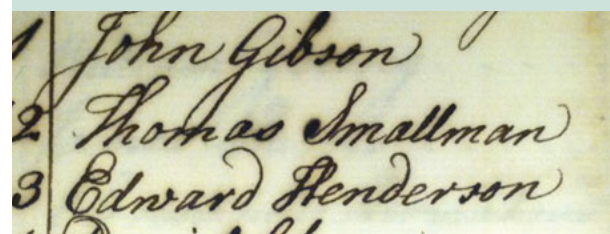 1 John Gibson
2 Thomas Smallman
3 Edward Henderson